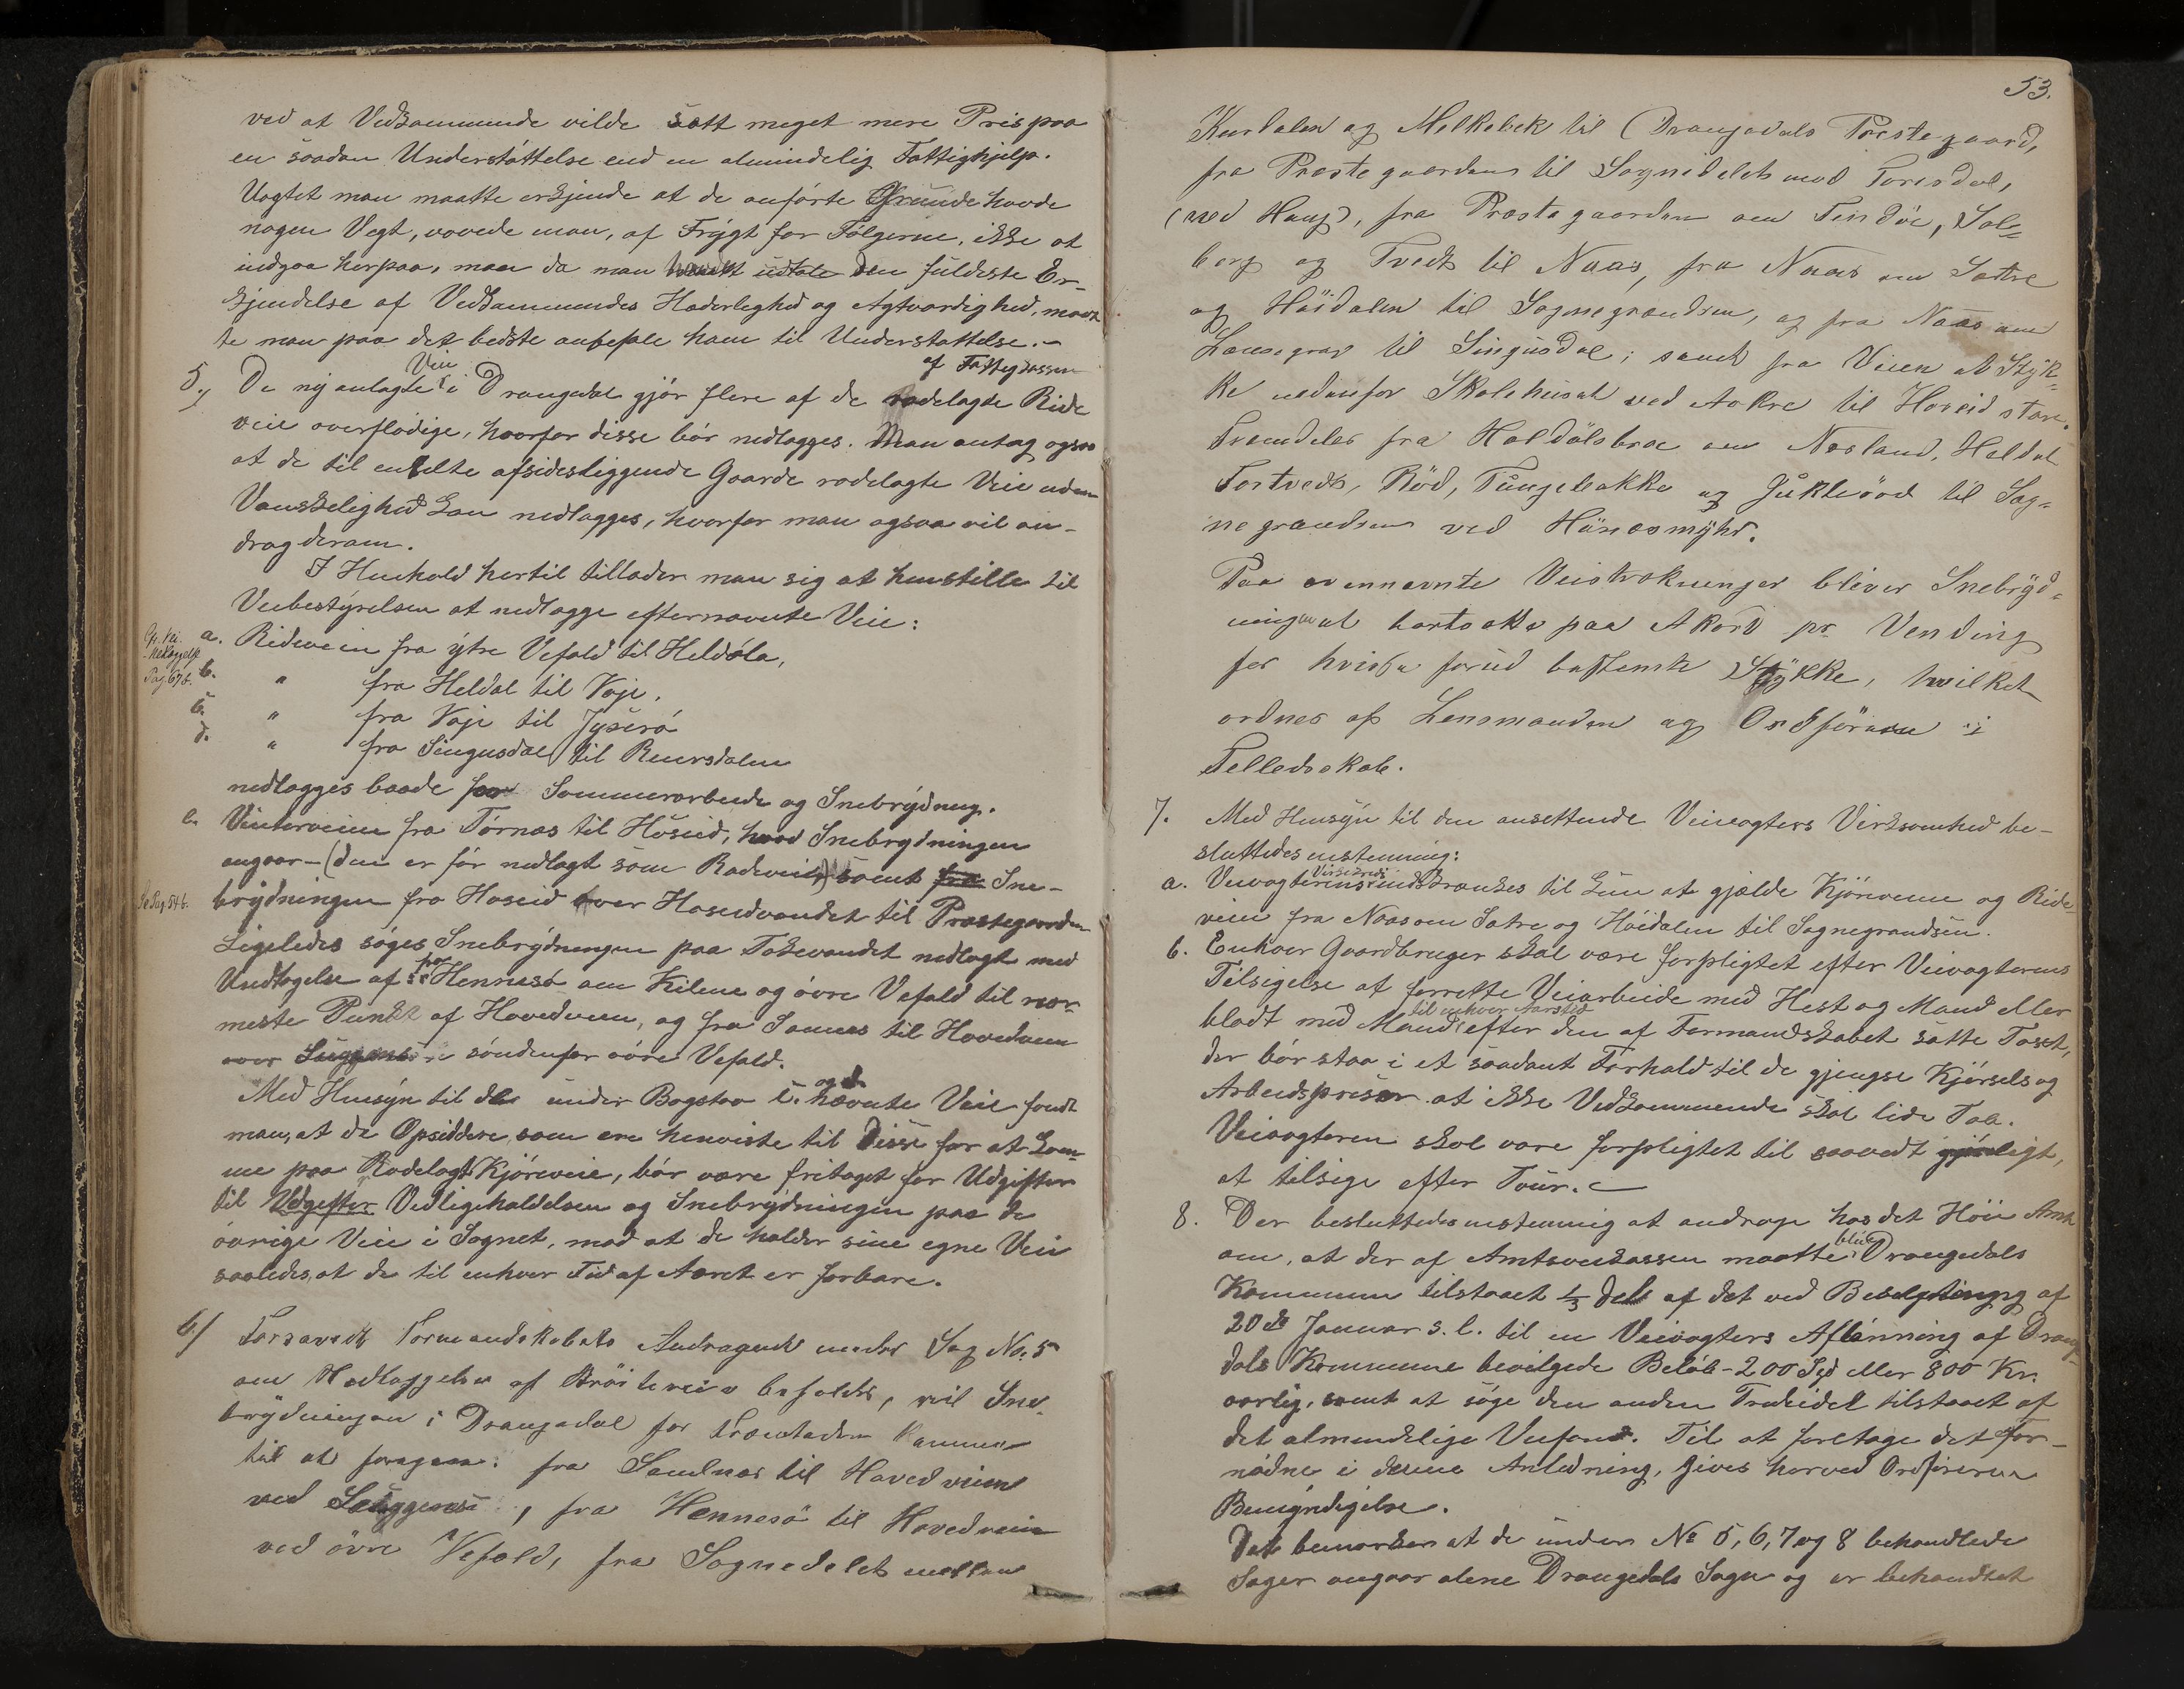 ved at Vedkommende vilde satt meget mere Pris paa
en saadan Understøttelse end en almindelig Fattighjelp.
Uagtet man maatte erkjende at de anførte Grunde havde
nogen Vegt, vovede man, af Frygt for Følgerne, ikke at
indgaa herpaa, men da man udtale den fuldeste Er-
kjendelse af Vedkommendes Hæderleghed og Agtværdighed, maat
te man paa det bedste anbefale ham til Understøttelse.-
af Fattigkassen
5) De ny anlagte Veie i Drangedal gjør flere af de rodelagte Ride
veie overflødige, hvorfor disse bør nedlægges. Man antog ogsaa
at de til enkelte afsidesliggende Gaarde rodelagte Veie uden
Vanskelighed kan nedlægges, hvorfor man ogsaa vil an-
drag derom.
I Henhold hertil tillader man sig at henstille til
Veibestyrelsen at nedlægge efternævnte Veie:
a. Rideveien fra ytre Vefald til Heldøla,
Pag. 67 b.
b. " fra Heldal til Voje.
c. " fra Voje til Jyserø
d. " fra Singusdal til Reinsdalen
nedlægges baade for Sommerarbeide og Snebrydning.
e. Vinterveien fra Tørnæs til Hoseid, hvad Snebrydningen
angaar - (den er før nedlagt som Rodevei) samt fra Sne-
Se Pag. 54 b.
brydningen fra Hoseid over Hoseidvandet til Præstegaarden
Ligeledes søges Snebrydningen paa Tokevandet nedlagt med
Undtagelse af fra Hennesø om Kilene og øvre Vefald til nær-
meste Punkt af Hovedveien, og fra Sannes til Hovedveien
over søndenfor øvre Vefald.
Med Hensyn til de under Bogstav c. og d. nævnte Veie fandt
man, at de Opsiddere, som ere henviste til disse for at kom-
me paa Rodelagt Kjørevei, bør være fritaget for Udgifter
til Udgifter Vedligeholdelsen og Snebrydningen paa de
øvrige Veie i Sognet, mod at de holder sine egne Veie
saaledes, at de til enhver Tid af Aaret er farbare.
6/ Forsavidt Formandskabets Andragende under Sag No. 5
om Nedlæggelse af Brøiteveie befoldes, vil Sne-
brydningen i Drangedal for Fremtiden komme
til at foregaa: fra Sandnæs til Hovedveien
ved , fra Hennesø til Hovedveien
ved øvre Vefald, fra Sognedelet mellem
53.
og Melkebek til Drangedals Præstegaard,
fra Præstegaarden til Sognedelet mod Tørisdal,
(ved Haug), fra Præstegaarden om Tindøe, Sol-
berg og Tvedt til Naas, fra Naas om Sattre
og Høidalen til Sognegrændsen, og fra Naas om
Lønnegrav til Singusdal; samt fra Veien et Styk-
ke nedenfor Skolehuset ved Aakre til Hoseid størr.
Fremdeles fra Heldølsbroe om Nesland, Heldal
Tortvedt, Rød, Tungebakke og til Sog-
negrændsen ved
Paa ovennævnte Veistrækninger bliver Snebryd-
ningen at bortsætte paa Akord pr. Vending
for hvisse forud bestemte Stykke, hvilket
ordnes af Lensmanden og Ordføreren i
Fælledsskab.
7. Med Hensyn til den ansettende Veivogters Virksomhed be-
sluttedes enstemmig:
a. Veivogterens Virksomhed indskrænkes til kun at gjælde Kjøreveien og Ride-
veien fra Naas om Satre og Høidalen til Sognegrændsen.
b. Enhver Gaardbruger skal være forpligtet efter Veivogterens
Tilsigelse at forrette Veiarbeide med Hest og Mand eller
blodt med Mand til enhver Aarstid efter den af Formandskabet satte Taxt,
der bør staa i et saadant Forhold til de gjengse Kjørsels og
Arbeidspriser at ikke Vedkommende skal lide Tab.
Veivogteren skal være forpligtet til saavidt gjørligt,
at tilsige efter Tour.
8. Der besluttedes enstemmig at andrage hos det Høie Amt
om, at der af Amtsveikassen maatte blive Drangedals
Kommune tilstaaet 1/3 Del af det ved Beslutning af
20de Januar s. l. til en Veivogters Aflønning af Drange-
dals Kommune bevilgede Beløb - 200 Spd eller 800 Kr.
aarlig, samt at søge den anden Trediedel tilstaaet af
det almindelige Veifond. Til at foretage det for-
nødne i denne Anledning, gives herved Ordføreren
Bemyndigelse.
Det bemærkes at de under No 5, 6, 7 og 8 behandlede
Sager angaar alene Drangedals Sogn og er behandlet